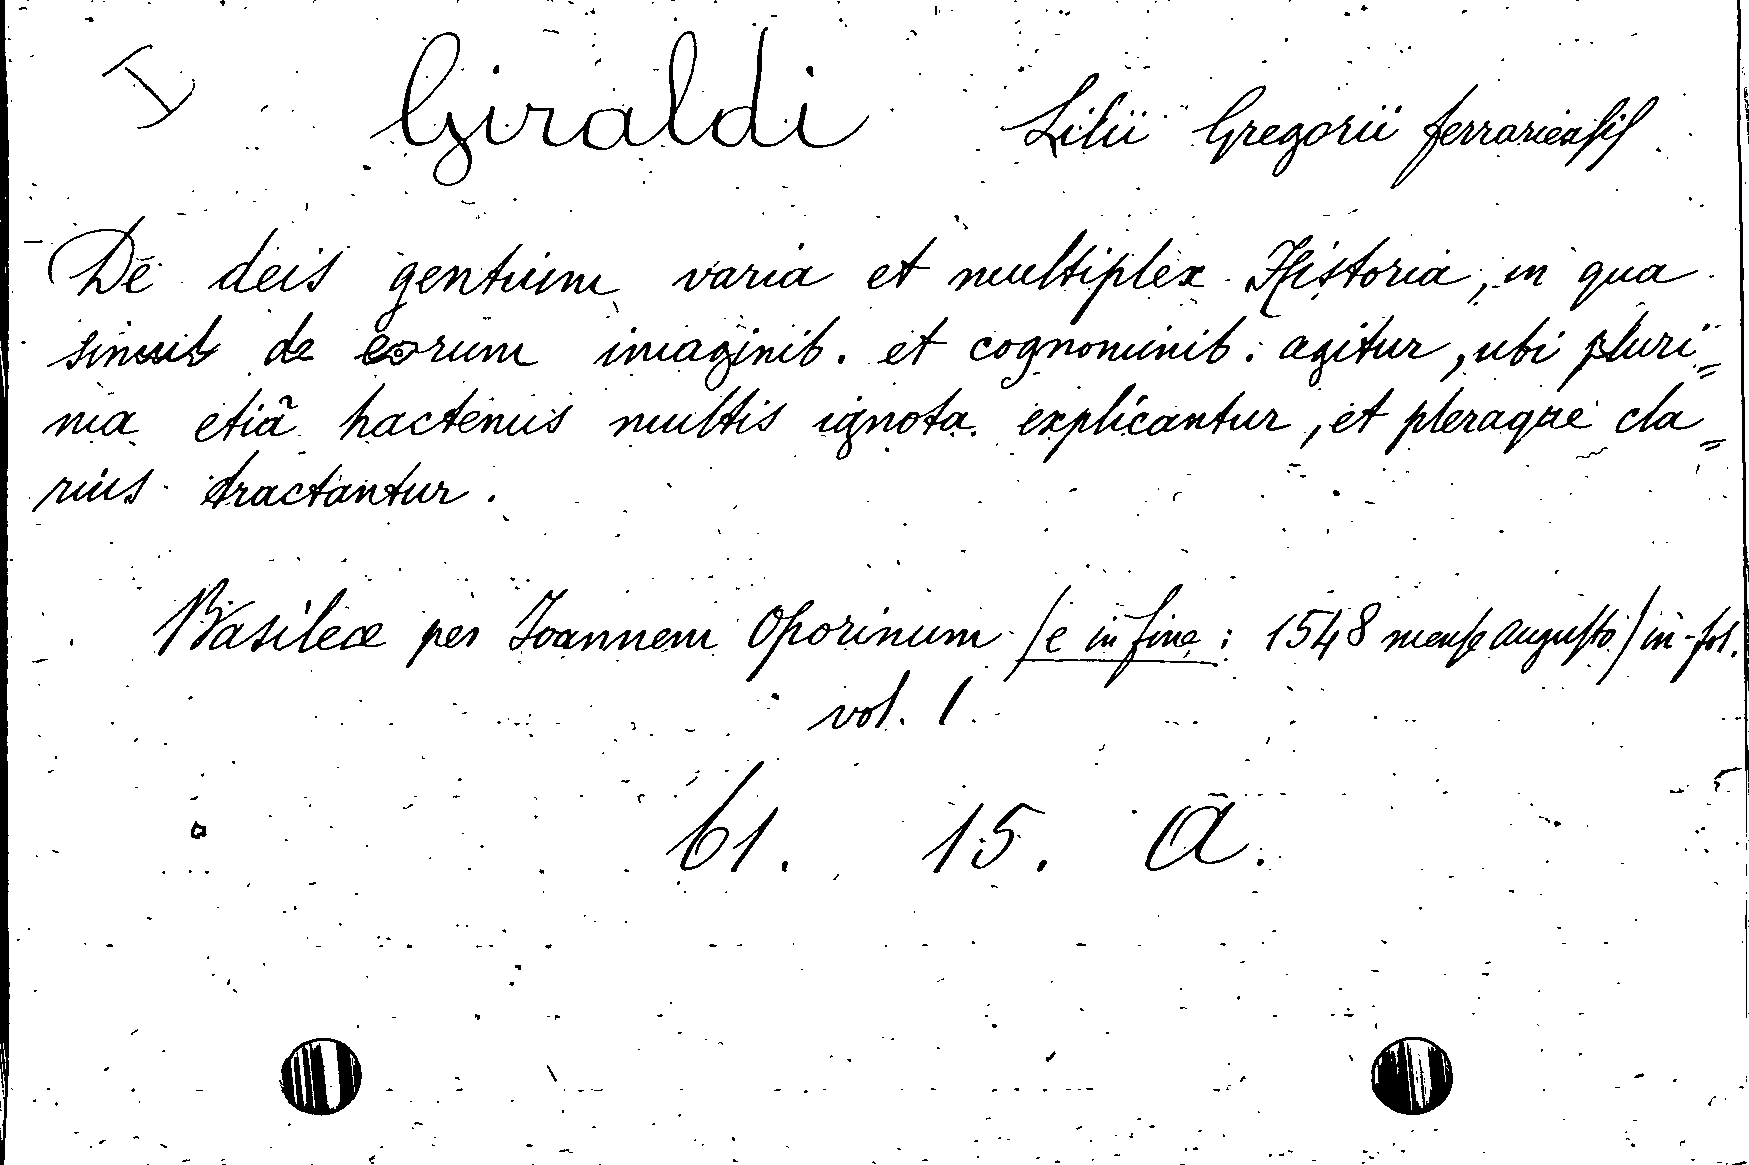 I Giraldi Lilii Gregorii ferrariensis
De deis gentium varia et multiplex Historia, in qua
simul de eorum imaginib. et cognominib: agitur, ubi pluri=
ma etiã hactenus multis ignota explicantur, et pleraque cla=
rius tractantur.
Basileæ per Joannem Oporinum (e in fine: 1548 mense augusto) in-fol.
vol. 1
61. 15. A.